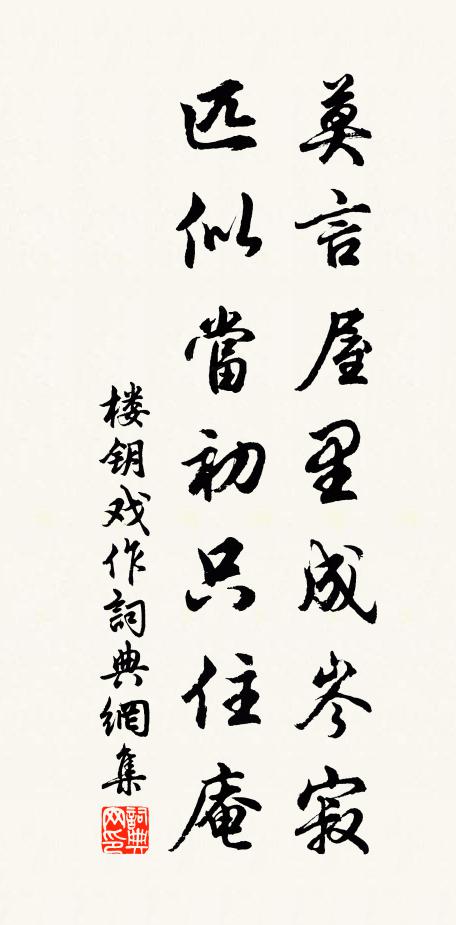 莫言屋里成岑寂
匹似當初只住庵
楼钥戏作詞典網集
詞典網印